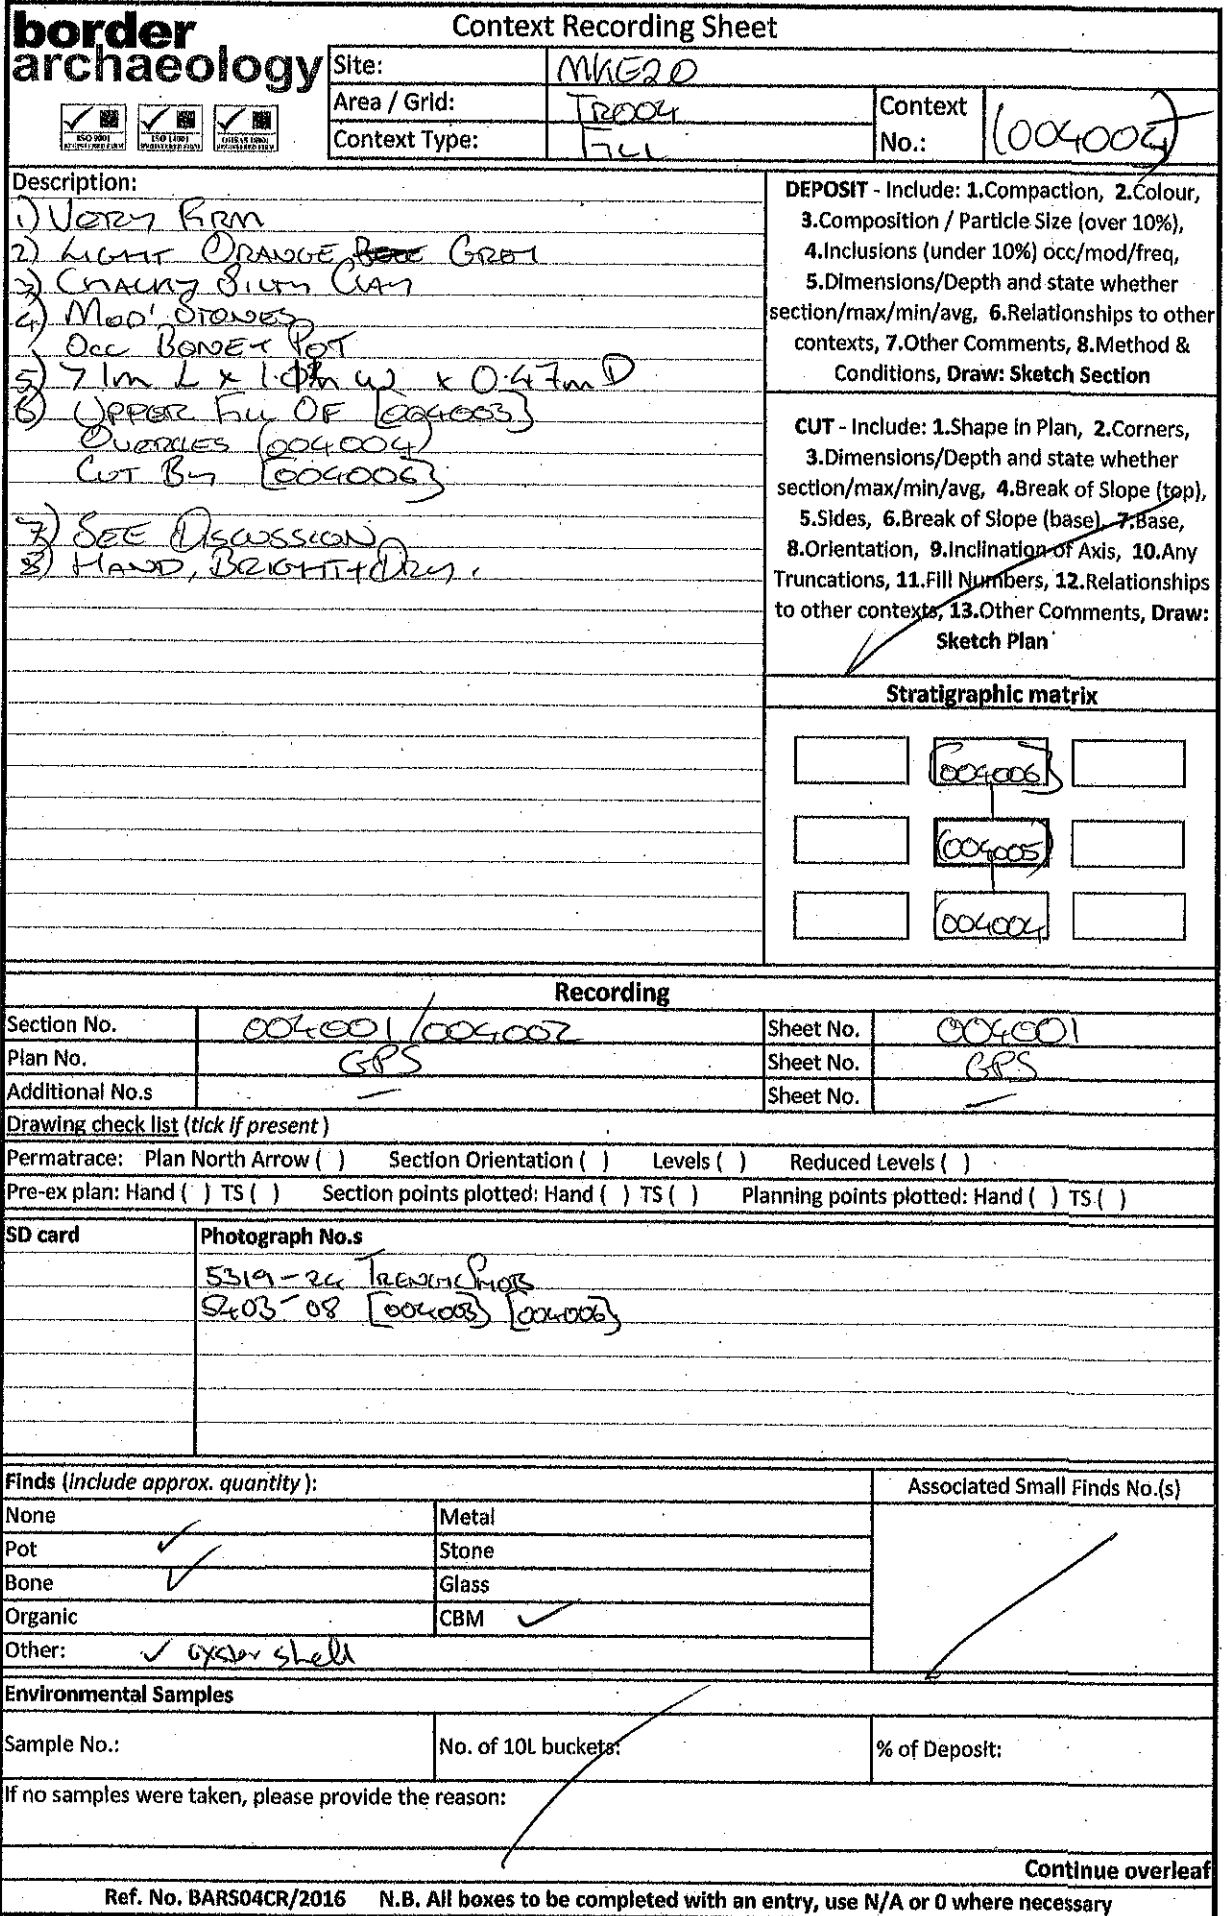 border
archaeology
ISO 9001
REGISTERED FIRM
ISO 14001
REGISTERED FIRM
OHSAS 18001
REGISTERED FIRM
Context Recording Sheet
Site: MKE20
Area / Grid: TR004
Context Type: FILL
Context No.: (004004)
Description:
1) VERY FIRM
2) LIGHT ORANGE GREY
3) CHALKY SILTY CLAY
4) MOD' STONES
OCC BONE + POT
5) >1m L x 1. m W x 0.47m D
6) UPPER FILL OF [004003]
OVERLIES (004004)
CUT BY [004006]
7) SEE DISCUSSION
8) HAND, BRIGHT + DRY.
DEPOSIT - Include: 1.Compaction, 2.Colour,
3.Composition / Particle Size (over 10%),
4.Inclusions (under 10%) occ/mod/freq,
5.Dimensions/Depth and state whether
section/max/min/avg, 6.Relationships to other
contexts, 7.Other Comments, 8.Method &
Conditions, Draw: Sketch Section
CUT - Include: 1.Shape in Plan, 2.Corners,
3.Dimensions/Depth and state whether
section/max/min/avg, 4.Break of Slope (top),
5.Sides, 6.Break of Slope (base), 7.Base,
8.Orientation, 9.Inclination of Axis, 10.Any
Truncations, 11.Fill Numbers, 12.Relationships
to other contexts, 13.Other Comments, Draw:
Sketch Plan
Stratigraphic matrix
[004006]
(004005)
(004004)
Recording
Section No. 004001/004002 Sheet No. 004001
Plan No. GPS Sheet No. GPS
Additional No.s — Sheet No. —
Drawing check list (tick if present)
Permatrace: Plan North Arrow ( ) Section Orientation ( ) Levels ( ) Reduced Levels ( )
Pre-ex plan: Hand ( ) TS ( ) Section points plotted: Hand ( ) TS ( ) Planning points plotted: Hand ( ) TS ( )
SD card Photograph No.s
5319-24 TRENCH SHOTS
5403-08 [004003] [004006]
Finds (include approx. quantity): Associated Small Finds No.(s)
None Metal
Pot ✓ Stone
Bone ✓ Glass
Organic CBM ✓
Other: ✓ oyster shell
Environmental Samples
Sample No.: No. of 10L buckets: % of Deposit:
If no samples were taken, please provide the reason:
Continue overleaf
Ref. No. BARS04CR/2016 N.B. All boxes to be completed with an entry, use N/A or 0 where necessary